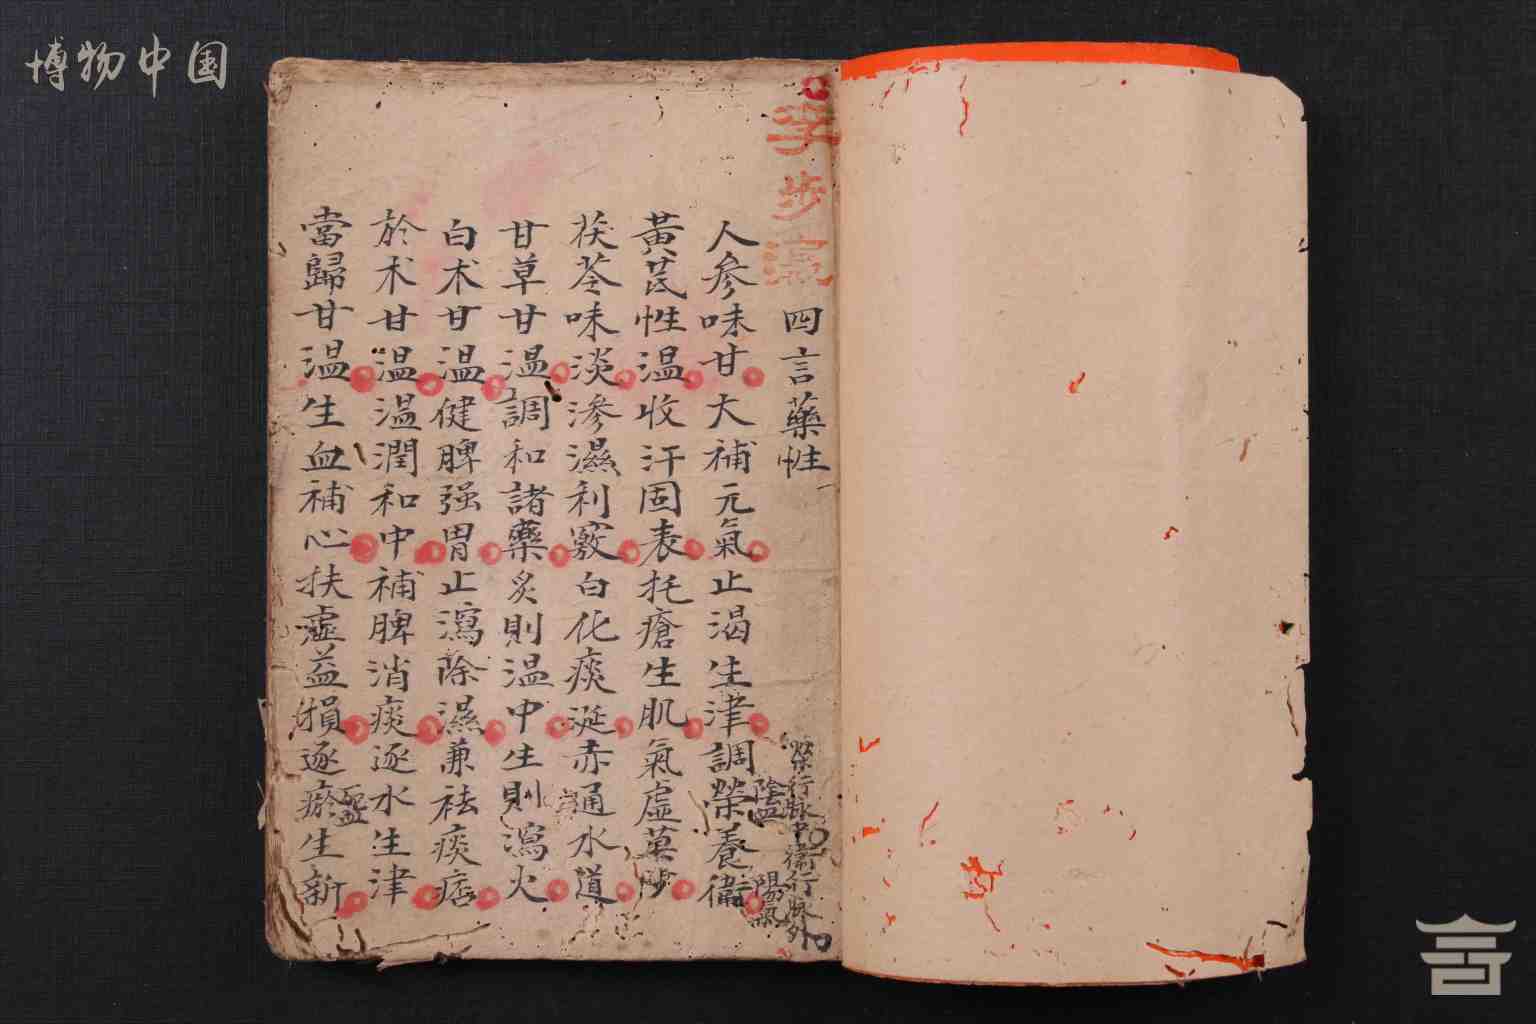 博物中国
李步瀛
四言藥性
人參味甘大補元氣止渴生津調榮養衞
黃芪性温收汗固表托瘡生肌氣虛莫少
茯苓味淡滲濕利竅白化痰涎赤通水道
甘草甘温調和諸藥炙則温中生則瀉火
白术甘温健脾强胃止瀉除濕兼祛痰痞
於术甘温温潤和中補脾消痰逐水生津
當歸甘温生血補心扶虛益損逐瘀生新
榮行脉中衞行脉外
陰血
陽氣